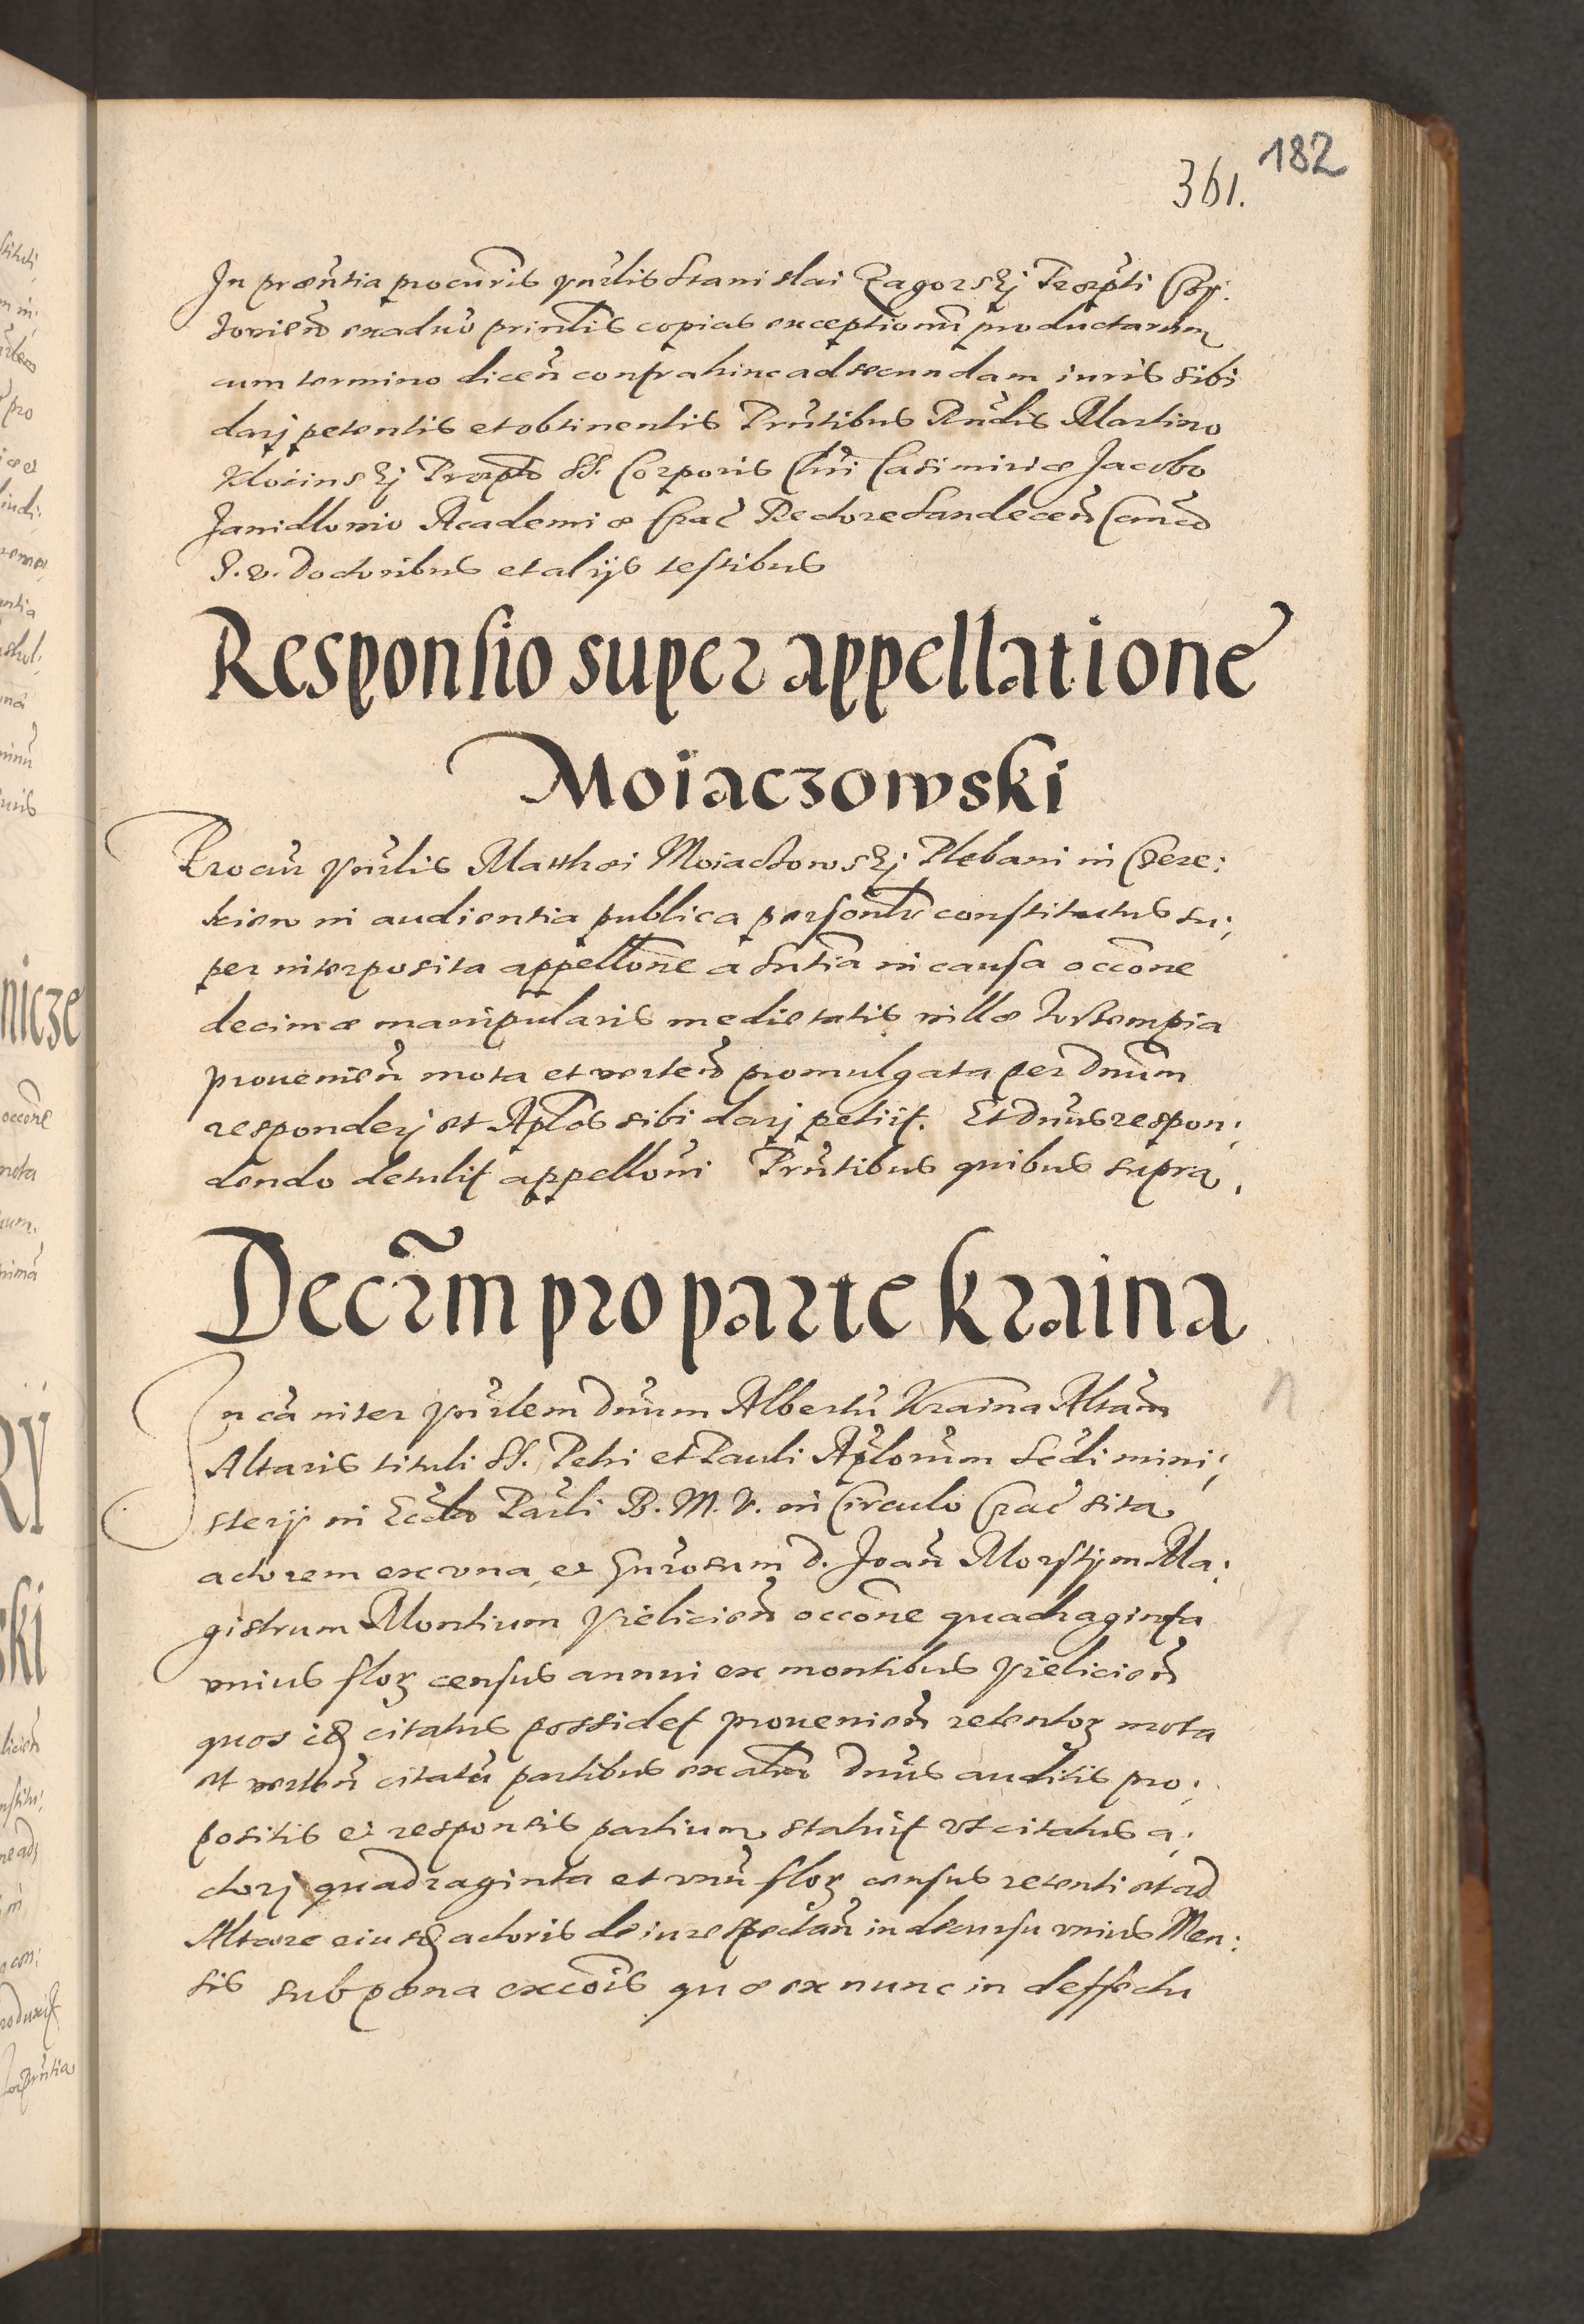 182
361.
In præntia procuris vnrlis Stanislai Zagorskj Præpti
exaduo printis copias exceptionũ productarum
cum termino dicen̄ contra hinc ad secundam iuris sibi
darj petentis et obtinentis Prntibus Rndis Martino
Klocinskj Præpto SS. Corporis Chri Casimiriæ Jacobo
Janidlouio Academiæ Crac̄ Rectore Sandecen̄ Canco
J. v. Doctoribus et alijs testibus
Responsio super appellatione
Moiaczowski
Procur vnrlis Matthæi Moiaczowskj Plebani in
in audientia publica personlr constitutus su;
per interposita appellone a Sntia in causa occone
decimæ manipularis medietatis villæ
prouenien̄ mota et verten̄ promulgata per Dnum
responderj et Aplos sibi darj petijt. Et Dnus respon;
dendo detulit appelloni Prntibus quibus supra,
Decrm pro parte Kraina
In ca inter vnrlem Dnum Albertū Kraina Altam
Altaris tituli SS. Petri et Pauli Aplorum Scdi mini;
sterij in Eccla Parli B. M. V. in Circulo Crac̄ sita
actorem ex vna, et Gnrosum D. Joan̄ Morstijn Ma;
gistrum Montium Vielicien̄ occone quadraginta
vnius flor census annui ex montibus Vielicien̄
quos idē citatus possidet prouenien̄ retentor mota
et verten̄ citatū partibus ex altra Dnus auditis pro;
positis et responsis partium statuit vt citatus a;
ctorj quadraginta et vnū flor census retenti et ad
Altare eiusd actoris de iure spectan̄ in decursu vnius Men;
sis sub pœna exccois quæ ex nunc in deffectu